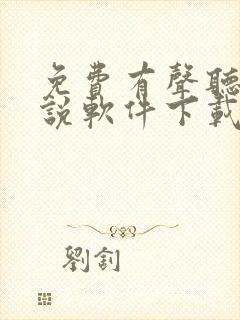 免費有聲聽
說軟件下載
劉釗